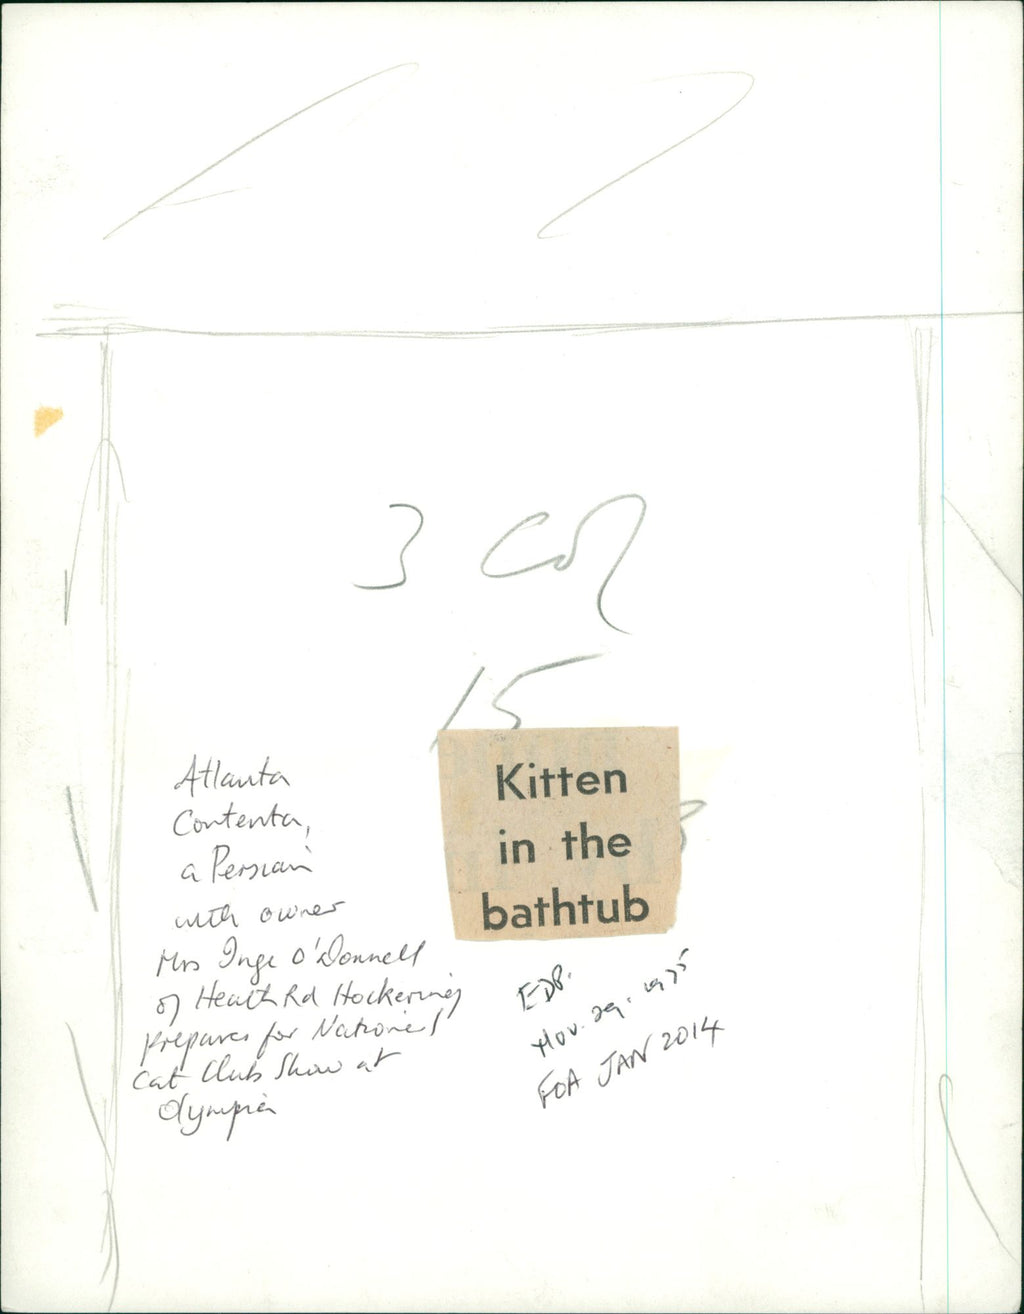 3 Col
15
Atlanta
Contenta,
a Persian
with owner
Mrs Inge O'Donnell
of Heath Rd Hockering
prepares for National
Cat Club Show at
Olympia
Kitten
in the
bathtub
EDP.
Nov. 29. 1975
FOA JAN 2014